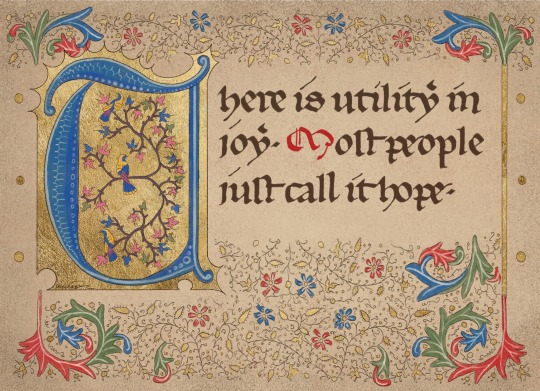 There is utility in
joy. Most people
just call it hope.